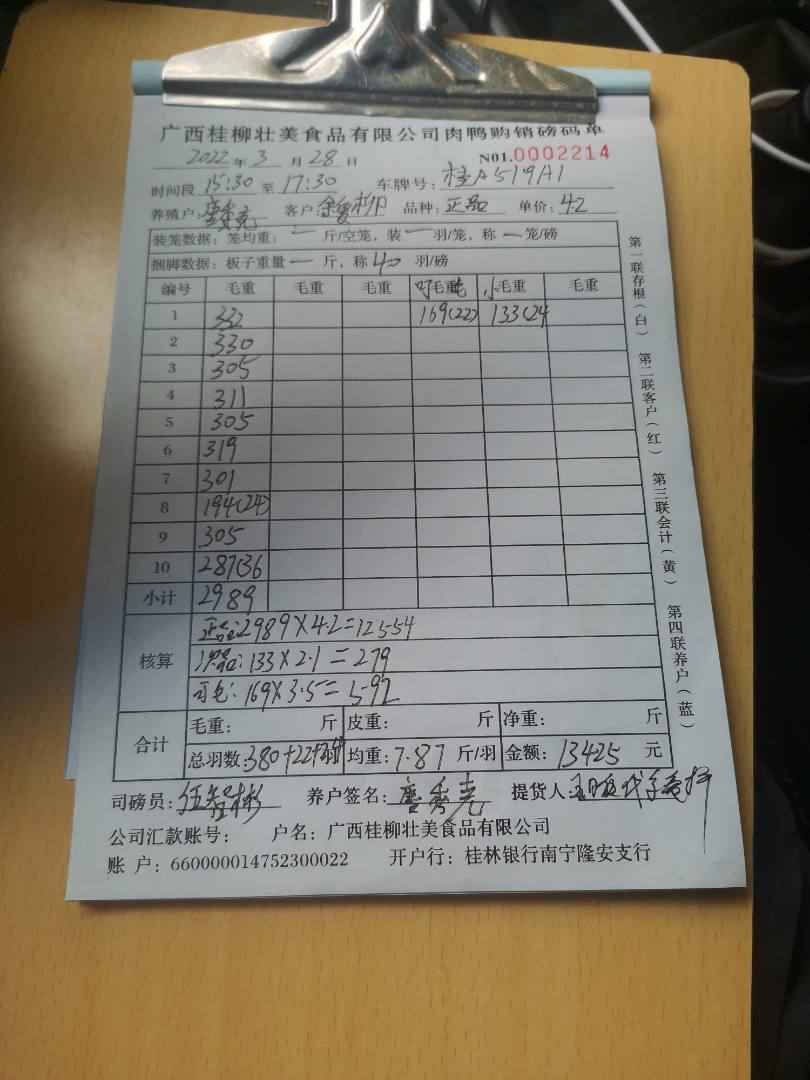 广西桂柳壮美食品有限公司肉鸭购销磅码单
2022 年 3 月 28 日 NO1.0002214
时间段 15:30 至 17:30 车牌号: 桂A519A1
养殖户: 客户: 品种: 正品 单价: 42
装笼数据: 笼均重: 一 斤/空笼, 装 一 羽/笼, 称 一 笼/磅
捆脚数据: 板子重量 一 斤, 称 40 羽/磅
编号 毛重 毛重 毛重 毛重 小毛重 毛重
1 332 169(22) 133(24
2 330
3 305
4 311
5 305
6 319
7 301
8 194(24)
9 305
10 287(36
小计 2989
核算 正品: 2989×4.2=12554
次品: 133×2.1=279
169×3.5=592
合计 毛重: 斤 皮重: 斤 净重: 斤
总羽数: 380+22+ 羽 均重: 7.87 斤/羽 金额: 13425 元
司磅员: 伍智彬 养户签名: 唐秀亮 提货人:
公司汇款账号: 户名: 广西桂柳壮美食品有限公司
账 户: 660000014752300022 开户行: 桂林银行南宁隆安支行
第一联存根(白) 第二联客户(红) 第三联会计(黄) 第四联养户(蓝)